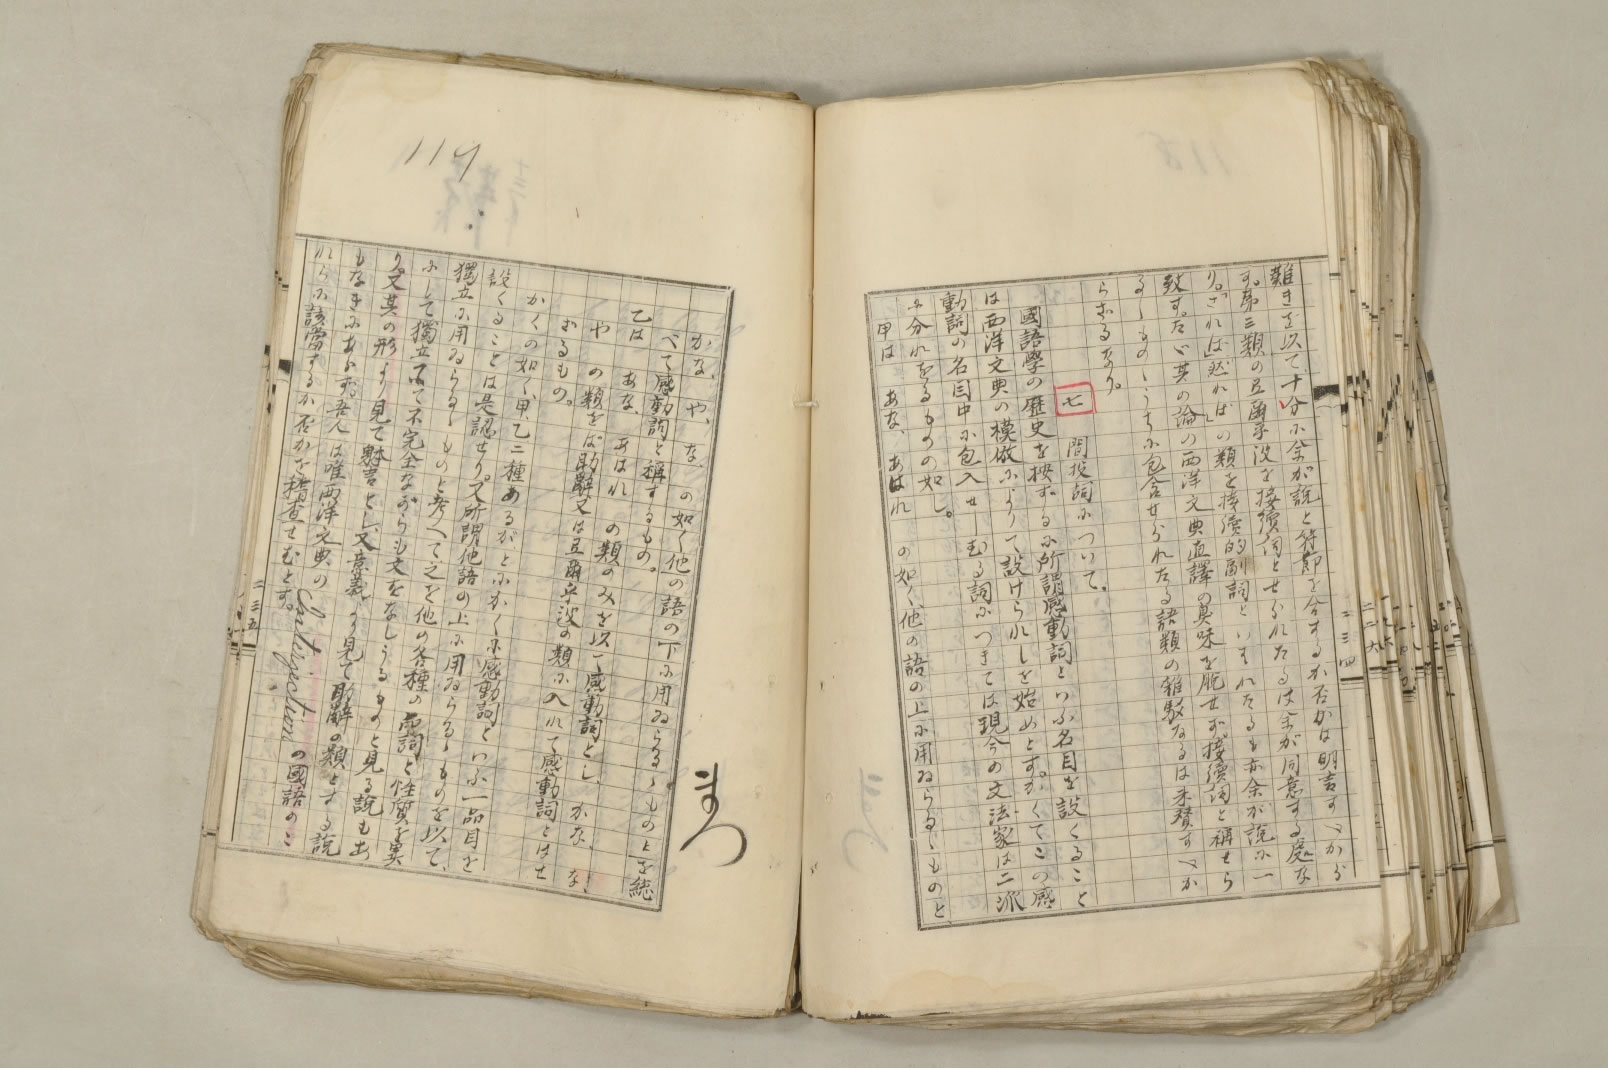 難きを以て十分に余が説と符節を合するか否かは明言すべから
ず。第三類の弖爾乎波を接続詞とせられたるは余が同意する処な
り。「されば」「然れば」の類を接続的副詞といはれたるも亦余が説に一
致す。たゞ其の論の西洋文典直譯の臭味を脱せず、接續詞と稱せら
るゝものゝうちに包含せられたる語類の雑駁なるは未賛すべか
らざるなり。
七 間投詞について。
國語學の歴史を按ずるに所謂感動詞といふ名目を設くること
は西洋文典の模倣によりて設けられしを始めとす。かくてこの感
動詞の名目中に包入せしむる詞につきては現今の文法家は二派
に分れをるものの如し。
甲は あな、あはれ の如く他の語の上に用ゐらるゝものと
二三四
かな、や、な、の如く他の語の下に用ゐらるゝものとを総
べて感動詞と稱するもの。
乙は あな、あはれ の類のみを以て感動詞とし かな、な、
や の類をば助辭又は弖爾乎波の類に入れて感動詞とはせ
ざるもの。
かくの如く甲乙二種あるがとにかくに感動詞といふ一品目を
設くることは是認せり。又所謂他語の上に用ゐらるゝものを以て、
獨立に用ゐらるゝものと考へて之を他の各種の品詞と性質を異
にして獨立して不完全ながらも文をなしうるものと見る説もあ
り。又其の形より見て副言とし、又意義より見て助辭の類とする説
もなきにあらず。吾人は唯西洋文典の Interjection の國語のこ
れらに該當するか否かを稽査せむとす。
二三五
117
まつ
二二六